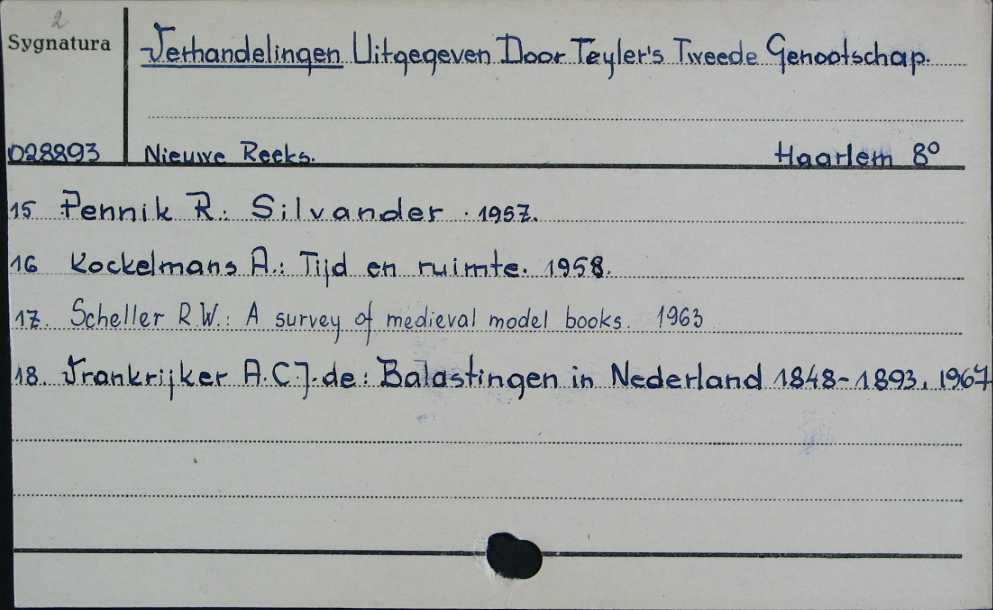 2
Sygnatura
Verhandelingen Uitgegeven Door Teyler's Tweede Genootschap.
D28893 Nieuwe Reeks. Haarlem 8°
15 Pennik R.: Silvander. 1957.
16 Kockelmans A.: Tijd en ruimte. 1958.
17. Scheller R.W.: A survey of medieval model books. 1963
18. Vrankrijker A.C.J. de: Balastingen in Nederland 1848-1893. 1967